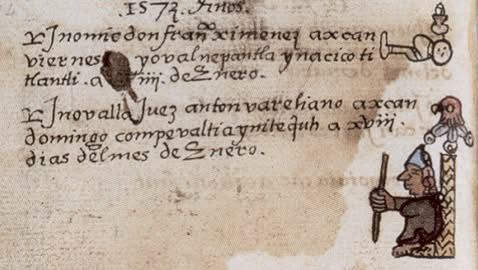 .1573. Años.
Yn omic don franco ximenez axcan
viernes yovalnepantla ynacico ti
tlantli . a iiii. de Enero.
Yn ovalla Juez anton vareliano axcan
domingo compevaltia ynitequh a xviii.
dias del mes de Enero.